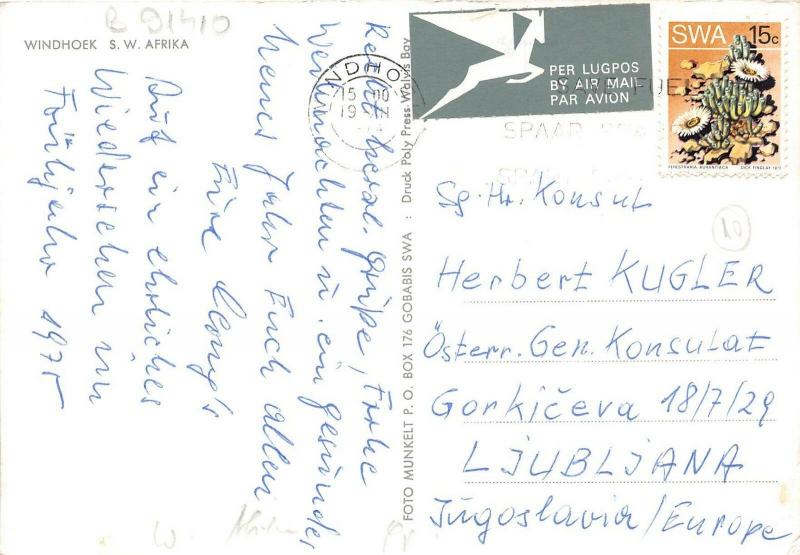 R 91410
WINDHOEK S. W. AFRIKA
Recht herzl. Grüße, Frohe
Weihnachten u. ein gesundes
neues Jahr Euch allen
Eure
Auf ein ehrliches
Wiedersehen im
Frühjahr 1975
FOTO MUNKELT P. O. BOX 176 GOBABIS SWA : Druck Poly Press Walvis Bay
NDHO
15
19
PER LUGPOS
BY AIR MAIL
PAR AVION
SPAAR
SWA 15c
FENESTRARIA AURANTIACA DICK FINDLAY 1973
10
Sg. Hr. Konsul
Herbert KUGLER
Österr. Gen. Konsulat
Gorkičeva 18/7/29
LJUBLJANA
Jugoslavia/Europe